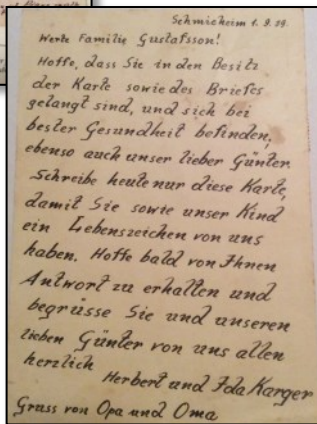 Schmieheim 1.9.39.
Werte Familie Gustafsson!
Hoffe, dass Sie in den Besitz
der Karte sowie des Briefes
gelangt sind, und sich bei
bester Gesundheit befinden,
ebenso auch unser lieber Günter.
Schreibe heute nur diese Karte,
damit Sie sowie unser Kind
ein Lebenszeichen von uns
haben. Hoffe bald von Ihnen
Antwort zu erhalten und
begrüsse Sie und unseren
lieben Günter von uns allen
herzlich
Herbert und Ida Karger
Gruss von Opa und Oma